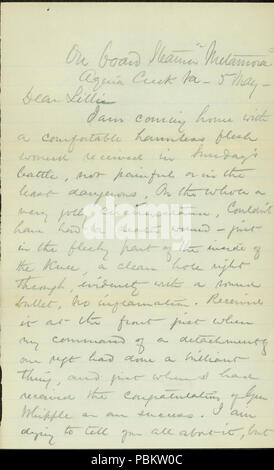 On board Steamer "Metamora"
Aquia Creek Va - 5 May -
Dear Lillie
I am coming home with
a comfortable harmless flesh
wound received in Sunday's
battle, not painful or in the
least dangerous. On the whole a
very jolly circumstance. Couldn't
have had a nicer wound - just
in the fleshy part of the inside of
the knee, a clean hole right
through, evidently with a round
bullet, no inflammation. Received
it at the front just when
my command of a detachment of
our regt had done a brilliant
thing, and just when I had
received the congratulations of Gen
Whipple on our success. I am
dying to tell you all about it, but
alamy
Image ID: PBKW0C
www.alamy.com